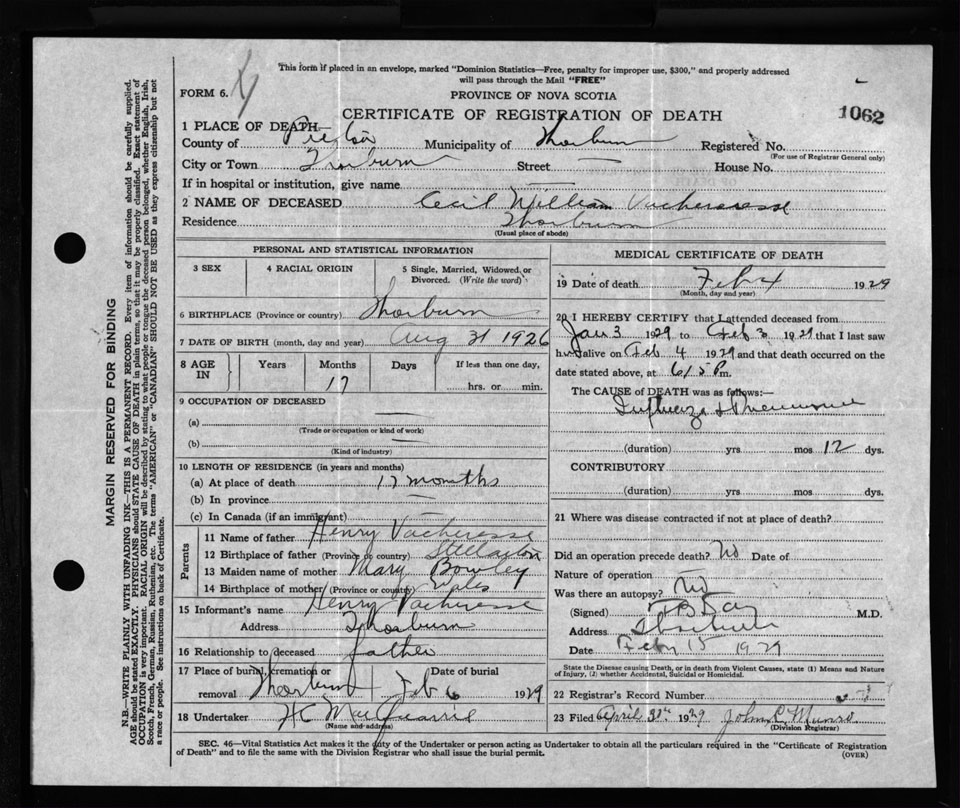 This form if placed in an envelope, marked "Dominion Statistics—Free, penalty for improper use, $300," and properly addressed
will pass through the Mail "FREE"
FORM 6.
PROVINCE OF NOVA SCOTIA
1062
CERTIFICATE OF REGISTRATION OF DEATH
1 PLACE OF DEATH—
County of Pictou Municipality of Thorburn Registered No.
(For use of Registrar General only)
City or Town Thorburn Street — House No.
If in hospital or institution, give name —
2 NAME OF DECEASED Cecil William Vacheresse
Residence Thorburn
(Usual place of abode)
PERSONAL AND STATISTICAL INFORMATION
3 SEX 4 RACIAL ORIGIN 5 Single, Married, Widowed or
Divorced. (Write the word)
6 BIRTHPLACE (Province or country) Thorburn
7 DATE OF BIRTH (month, day and year) Aug 31 1926
8 AGE IN Years Months Days If less than one day,
17 hrs. or min.
9 OCCUPATION OF DECEASED —
(a) —
(Trade or occupation or kind of work)
(b)
(Kind of industry)
10 LENGTH OF RESIDENCE (in years and months)
(a) At place of death 17 months
(b) In province —
(c) In Canada (if an immigrant)
Parents
11 Name of father Henry Vacheresse
12 Birthplace of father (Province or country) Stellarton
13 Maiden name of mother Mary Bowley
14 Birthplace of mother (Province or country) Wales
15 Informant's name Henry Vacheresse
Address Thorburn
16 Relationship to deceased father
17 Place of burial, cremation or Date of burial
removal Thorburn Feb 6 1929
18 Undertaker H C MacQuarrie
(Name and address)
MEDICAL CERTIFICATE OF DEATH
19 Date of death Feb 4 1929
(Month, day and year)
20 I HEREBY CERTIFY that I attended deceased from
Jan 3 1929 to Feb 3 1929 that I last saw
him alive on Feb 4 1929 and that death occurred on the
date stated above, at 615 P m.
The CAUSE of DEATH was as follows:—
Influenza & Pneumonia
(duration) yrs mos 12 dys.
CONTRIBUTORY
(duration) yrs mos dys.
21 Where was disease contracted if not at place of death?
Did an operation precede death? No Date of
Nature of operation
Was there an autopsy? No
(Signed) M.D.
Address Thorburn
Date Feb 15 1929
State the Disease causing Death, or in death from Violent Causes, state (1) Means and Nature
of Injury, (2) whether Accidental, Suicidal or Homicidal.
22 Registrar's Record Number
23 Filed April 3rd 1929 John C Munro
(Division Registrar)
SEC. 46—Vital Statistics Act makes it the duty of the Undertaker or person acting as Undertaker to obtain all the particulars required in the "Certificate of Registration
of Death" and to file the same with the Division Registrar who shall issue the burial permit. (OVER)
MARGIN RESERVED FOR BINDING
N.B.—WRITE PLAINLY WITH UNFADING INK—THIS IS A PERMANENT RECORD. Every item of information should be carefully supplied.
AGE should be stated EXACTLY. PHYSICIANS should STATE CAUSE OF DEATH in plain terms, so that it may be properly classified. Exact statement of
OCCUPATION is very important. RACIAL ORIGIN will be described by stating to what people or tongue the deceased person belonged, whether English, Irish,
Scotch, French, German, Russian, Ruthenian, etc. The terms "AMERICAN" or "CANADIAN" SHOULD NOT BE USED as they express citizenship but not
a race or people. See instructions on back of Certificate.